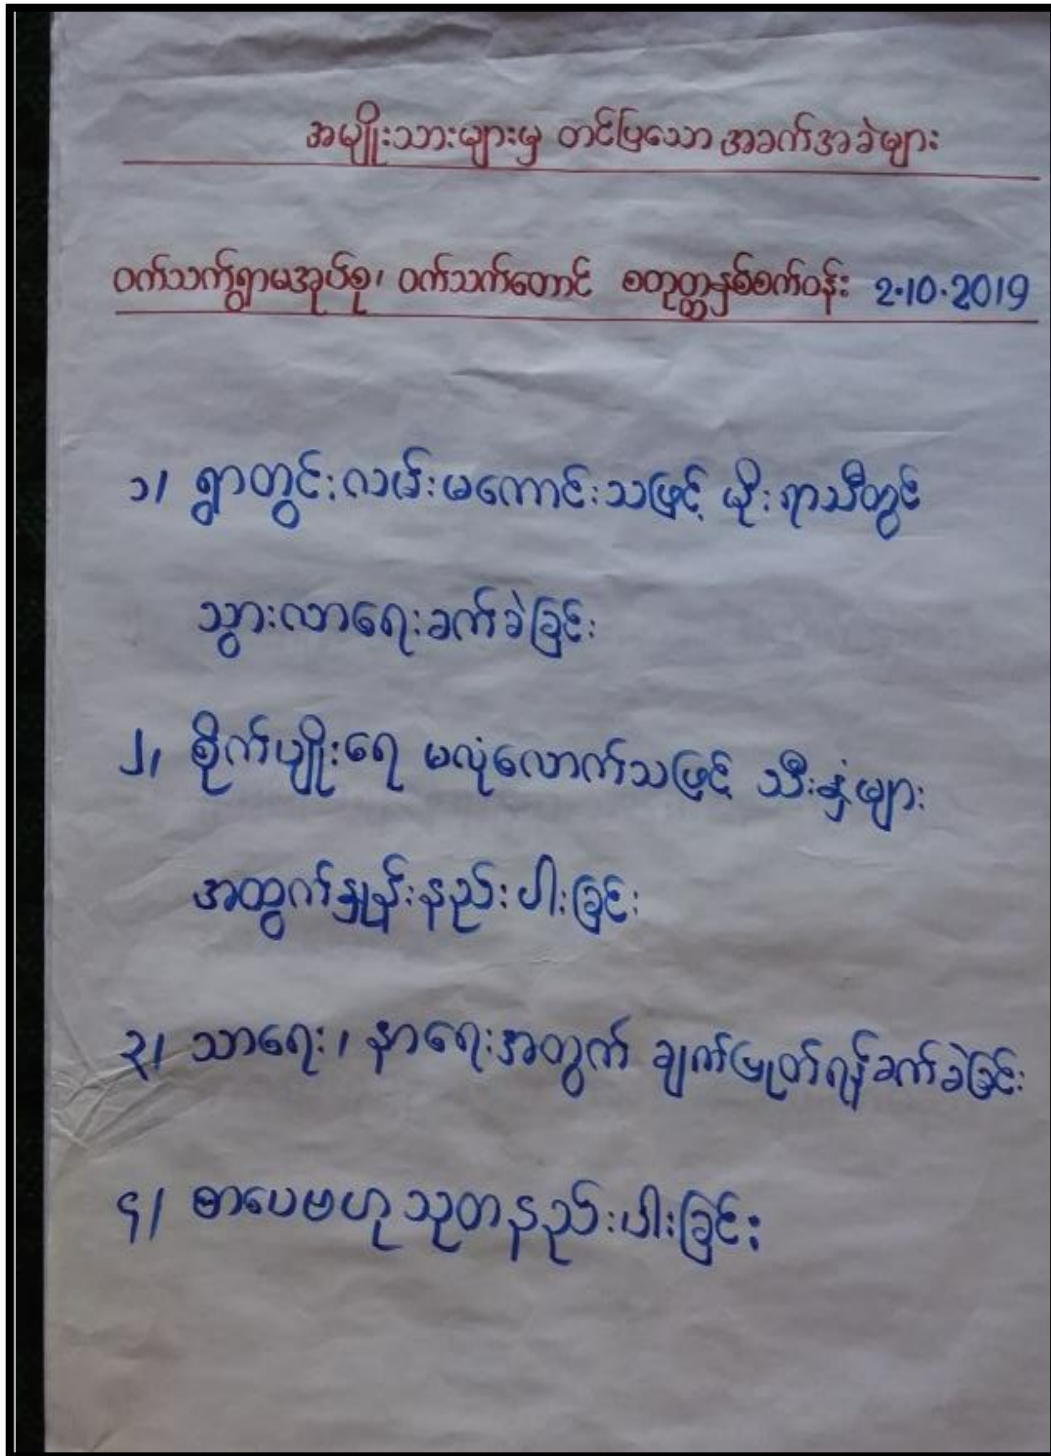 အမျိုးသားများမှ တင်ပြသော အခက်အခဲများ
ဝက်သက်ရွာမအုပ်စု၊ ဝက်သက်တောင် စတုတ္ထနှစ်စက်ဝန်း 2.10.2019
၁/ ရွာတွင်းလမ်းမကောင်းသဖြင့် မိုးရာသီတွင်
သွားလာရေးခက်ခဲခြင်း
၂/ စိုက်ပျိုးရေ မလုံလောက်သဖြင့် သီးနှံများ
အထွက်နှုန်းနည်းပါးခြင်း
၃/ သာရေး၊ နာရေးအတွက် ချက်ပြုတ်ရန်ခက်ခဲခြင်း
၄/ စာပေဗဟုသုတနည်းပါးခြင်း